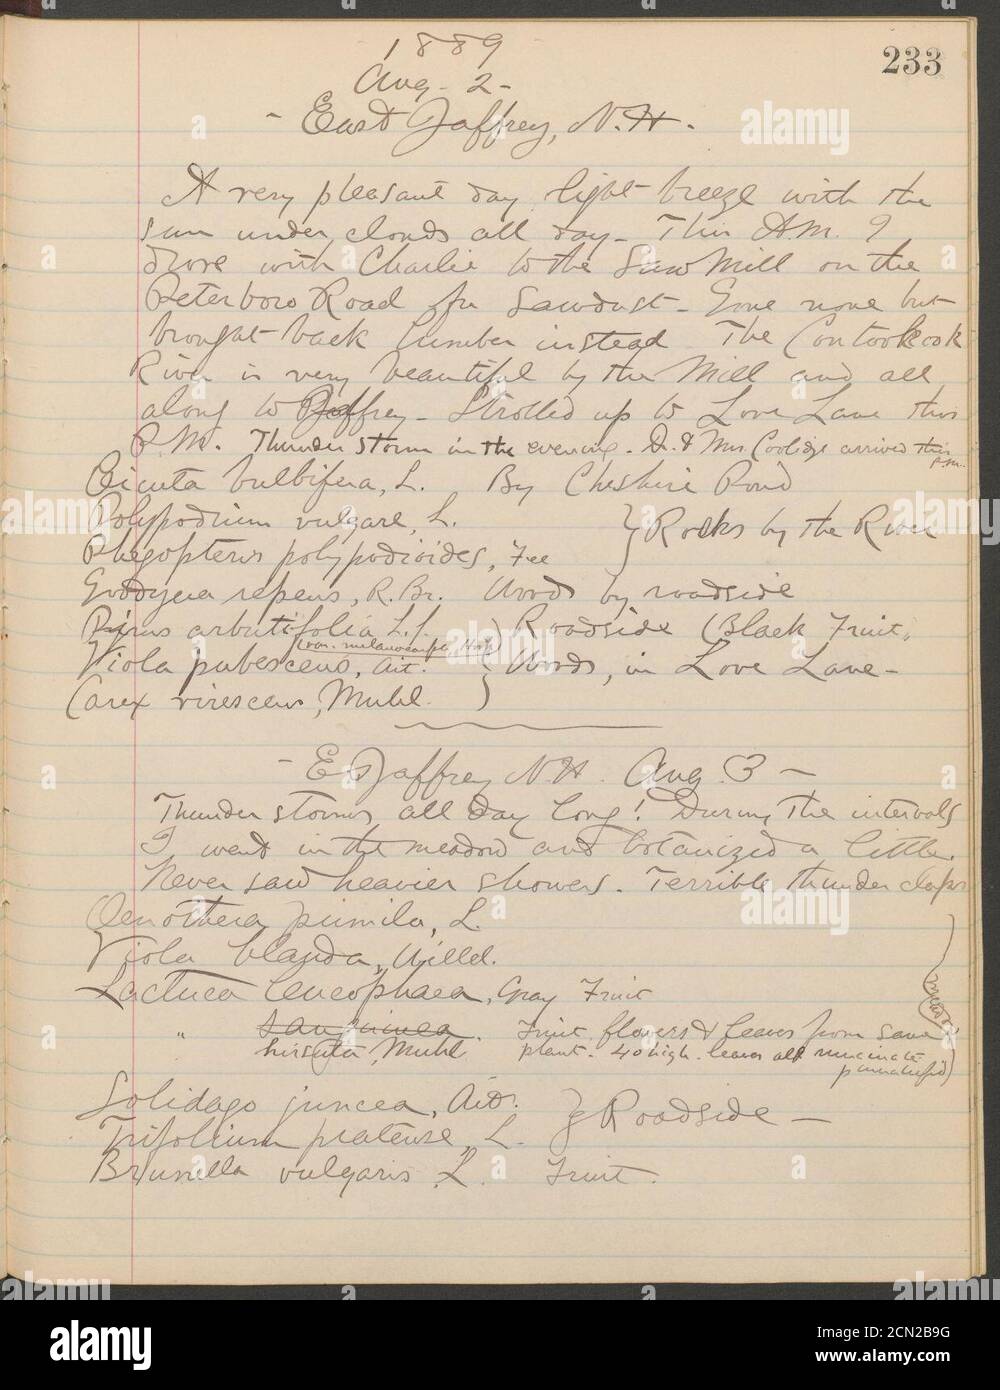 233
1889
Aug. 2-
- East Jaffrey, N.H.
A very pleasant day, light breeze with the
sun under clouds all day - This A.M. I
drove with Charlie to the Saw Mill on the
Peterboro Road for sawdust - Gone none but
brought back lumber instead The Contoocook
River is very beautiful by the Mill and all
along to Jaffrey - Strolled up to Love Lane this
P.M. Thunder storm in the evening. Dr. & Mrs Coolidge arrived this
P.M.
Cicuta bulbifera, L. By Cheshire Pond
Polypodium vulgare, L.
Phegopteris polypodioides, Fee } Rocks by the River
Goodyera repens, R.Br. Woods by roadside
Pyrus arbutifolia L.f. } Roadside (Black Fruit,
(var. melanocarpa, Hook)
Viola pubescens, Ait. } Woods, in Love Lane -
Carex virescens, Muhl.
- E. Jaffrey N.H. Aug. 3 -
Thunder storms all day long! During the intervals
I went in the meadow and botanized a little.
Never saw heavier showers. Terrible thunder claps
Oenothera pumila, L.
Viola blanda, Willd.
Lactuca leucophaea, Gray Fruit
" sanguinea. Fruit, flowers & leaves from same
hirsuta, Muhl. plant. 40 high. leaves all runcinate
pinnatifid)
Meadow
Solidago juncea, Ait. } Roadside -
Trifolium pratense, L.
Brunella vulgaris, L. Fruit.
alamy
Image ID: 2CN2B9G
www.alamy.com